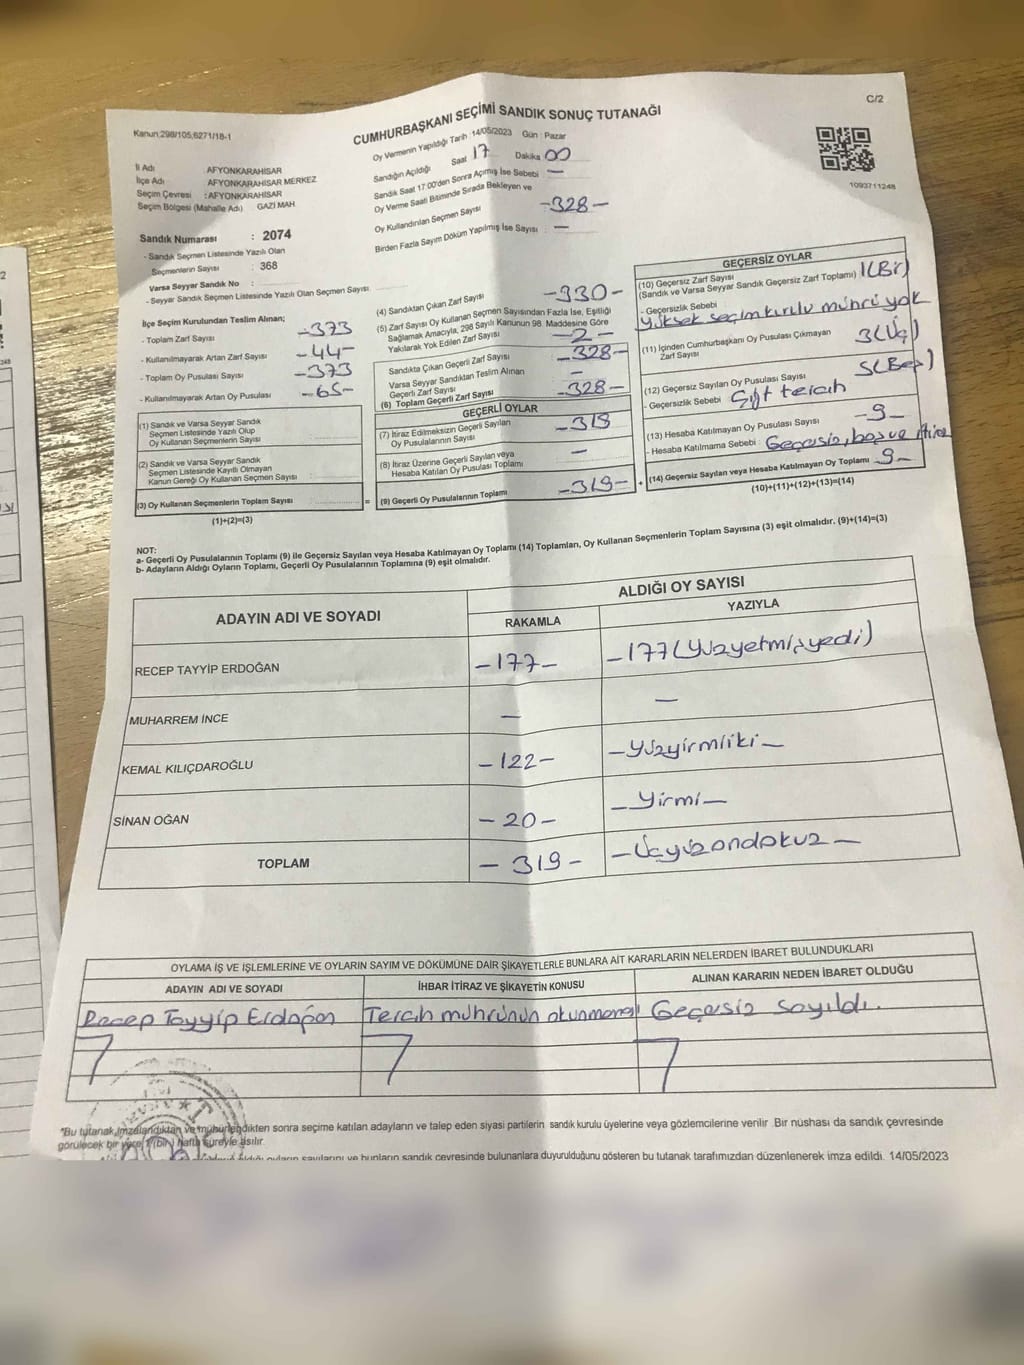 C/2
Kanun:298/105;6271/18-1
CUMHURBAŞKANI SEÇİMİ SANDIK SONUÇ TUTANAĞI
Oy Vermenin Yapıldığı Tarih :14/05/2023 Gün : Pazar
Sandığın Açıldığı Saat 17 Dakika 00
Sandık Saat 17:00'den Sonra Açılmış İse Sebebi —
Oy Verme Saati Bitiminde Sırada Bekleyen ve
Oy Kullandırılan Seçmen Sayısı -328-
Birden Fazla Sayım Döküm Yapılmış İse Sayısı : —
1093711248
İl Adı : AFYONKARAHİSAR
İlçe Adı : AFYONKARAHİSAR MERKEZ
Seçim Çevresi : AFYONKARAHİSAR
Seçim Bölgesi (Mahalle Adı) GAZİ MAH.
Sandık Numarası : 2074
- Sandık Seçmen Listesinde Yazılı Olan
Seçmenlerin Sayısı : 368
Varsa Seyyar Sandık No :
- Seyyar Sandık Seçmen Listesinde Yazılı Olan Seçmen Sayısı
İlçe Seçim Kurulundan Teslim Alınan;
- Toplam Zarf Sayısı -373
- Kullanılmayarak Artan Zarf Sayısı -44-
- Toplam Oy Pusulası Sayısı -373
- Kullanılmayarak Artan Oy Pusulası -65-
(1) Sandık ve Varsa Seyyar Sandık
Seçmen Listesinde Yazılı Olup
Oy Kullanan Seçmenlerin Sayısı
(2) Sandık ve Varsa Seyyar Sandık
Seçmen Listesinde Kayıtlı Olmayan
Kanun Gereği Oy Kullanan Seçmen Sayısı
(3) Oy Kullanan Seçmenlerin Toplam Sayısı =
(1)+(2)=(3)
(4) Sandıktan Çıkan Zarf Sayısı -330-
(5) Zarf Sayısı Oy Kullanan Seçmen Sayısından Fazla İse, Eşitliği
Sağlamak Amacıyla, 298 Sayılı Kanunun 98. Maddesine Göre
Yakılarak Yok Edilen Zarf Sayısı -2-
Sandıkta Çıkan Geçerli Zarf Sayısı -328-
Varsa Seyyar Sandıktan Teslim Alınan
Geçerli Zarf Sayısı —
(6) Toplam Geçerli Zarf Sayısı -328-
GEÇERLİ OYLAR
(7) İtiraz Edilmeksizin Geçerli Sayılan
Oy Pusulalarının Sayısı -319
(8) İtiraz Üzerine Geçerli Sayılan veya
Hesaba Katılan Oy Pusulası Toplamı —
(9) Geçerli Oy Pusulalarının Toplamı -319- +
GEÇERSİZ OYLAR
(10) Geçersiz Zarf Sayısı
(Sandık ve Varsa Seyyar Sandık Geçersiz Zarf Toplamı) 1(Bir)
- Geçersizlik Sebebi :
Yüksek seçim kurulu mührü yok
(11) İçinden Cumhurbaşkanı Oy Pusulası Çıkmayan
Zarf Sayısı 3(Üç)
(12) Geçersiz Sayılan Oy Pusulası Sayısı 5(Beş)
- Geçersizlik Sebebi : Çift tercih
(13) Hesaba Katılmayan Oy Pusulası Sayısı -9-
- Hesaba Katılmama Sebebi : Geçersiz, boş ve itiraz
(14) Geçersiz Sayılan veya Hesaba Katılmayan Oy Toplamı 9-
(10)+(11)+(12)+(13)=(14)
NOT:
a- Geçerli Oy Pusulalarının Toplamı (9) ile Geçersiz Sayılan veya Hesaba Katılmayan Oy Toplamı (14) Toplamları, Oy Kullanan Seçmenlerin Toplam Sayısına (3) eşit olmalıdır. (9)+(14)=(3)
b- Adayların Aldığı Oyların Toplamı, Geçerli Oy Pusulalarının Toplamına (9) eşit olmalıdır.
ADAYIN ADI VE SOYADI
ALDIĞI OY SAYISI
RAKAMLA YAZIYLA
RECEP TAYYİP ERDOĞAN -177- -177(Yüzyetmişyedi)
MUHARREM İNCE — —
KEMAL KILIÇDAROĞLU -122- -Yüzyirmiiki-
SİNAN OĞAN -20- -Yirmi-
TOPLAM -319- -Üçyüzondokuz-
OYLAMA İŞ VE İŞLEMLERİNE VE OYLARIN SAYIM VE DÖKÜMÜNE DAİR ŞİKAYETLERLE BUNLARA AİT KARARLARIN NELERDEN İBARET BULUNDUKLARI
ADAYIN ADI VE SOYADI İHBAR İTİRAZ VE ŞİKAYETİN KONUSU ALINAN KARARIN NEDEN İBARET OLDUĞU
Recep Tayyip Erdoğan Tercih mührünün okunmaması Geçersiz sayıldı.
"Bu tutanak imzalandıktan ve mühürlendikten sonra seçime katılan adayların ve talep eden siyasi partilerin sandık kurulu üyelerine veya gözlemcilerine verilir. Bir nüshası da sandık çevresinde
görülecek bir yere 1 (bir) hafta süreyle asılır.
oyların sayılarını ve bunların sandık çevresinde bulunanlara duyurulduğunu gösteren bu tutanak tarafımızdan düzenlenerek imza edildi. 14/05/2023